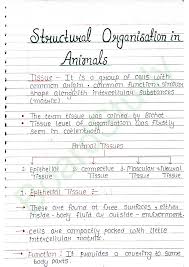 Structural Organisation in
Animals
Tissue :- It is a group of cells with
common origin, common function & similar
shape along with intercellular substances
(matrix).
→ The term tissue was coined by Bichat
→ Tissue level of organisation was firstly
seen in coelenterata
Animal Tissues
1. Epithelial 2. Connective 3. Muscular 4. Neural
Tissue Tissue Tissue Tissue
1. Epithelial Tissue :-
→ These are found at free surfaces either
inside body fluid or outside environment
→ cells are compactly packed with little
intercellular matrix.
→ Function : It provides a covering to some
body parts.